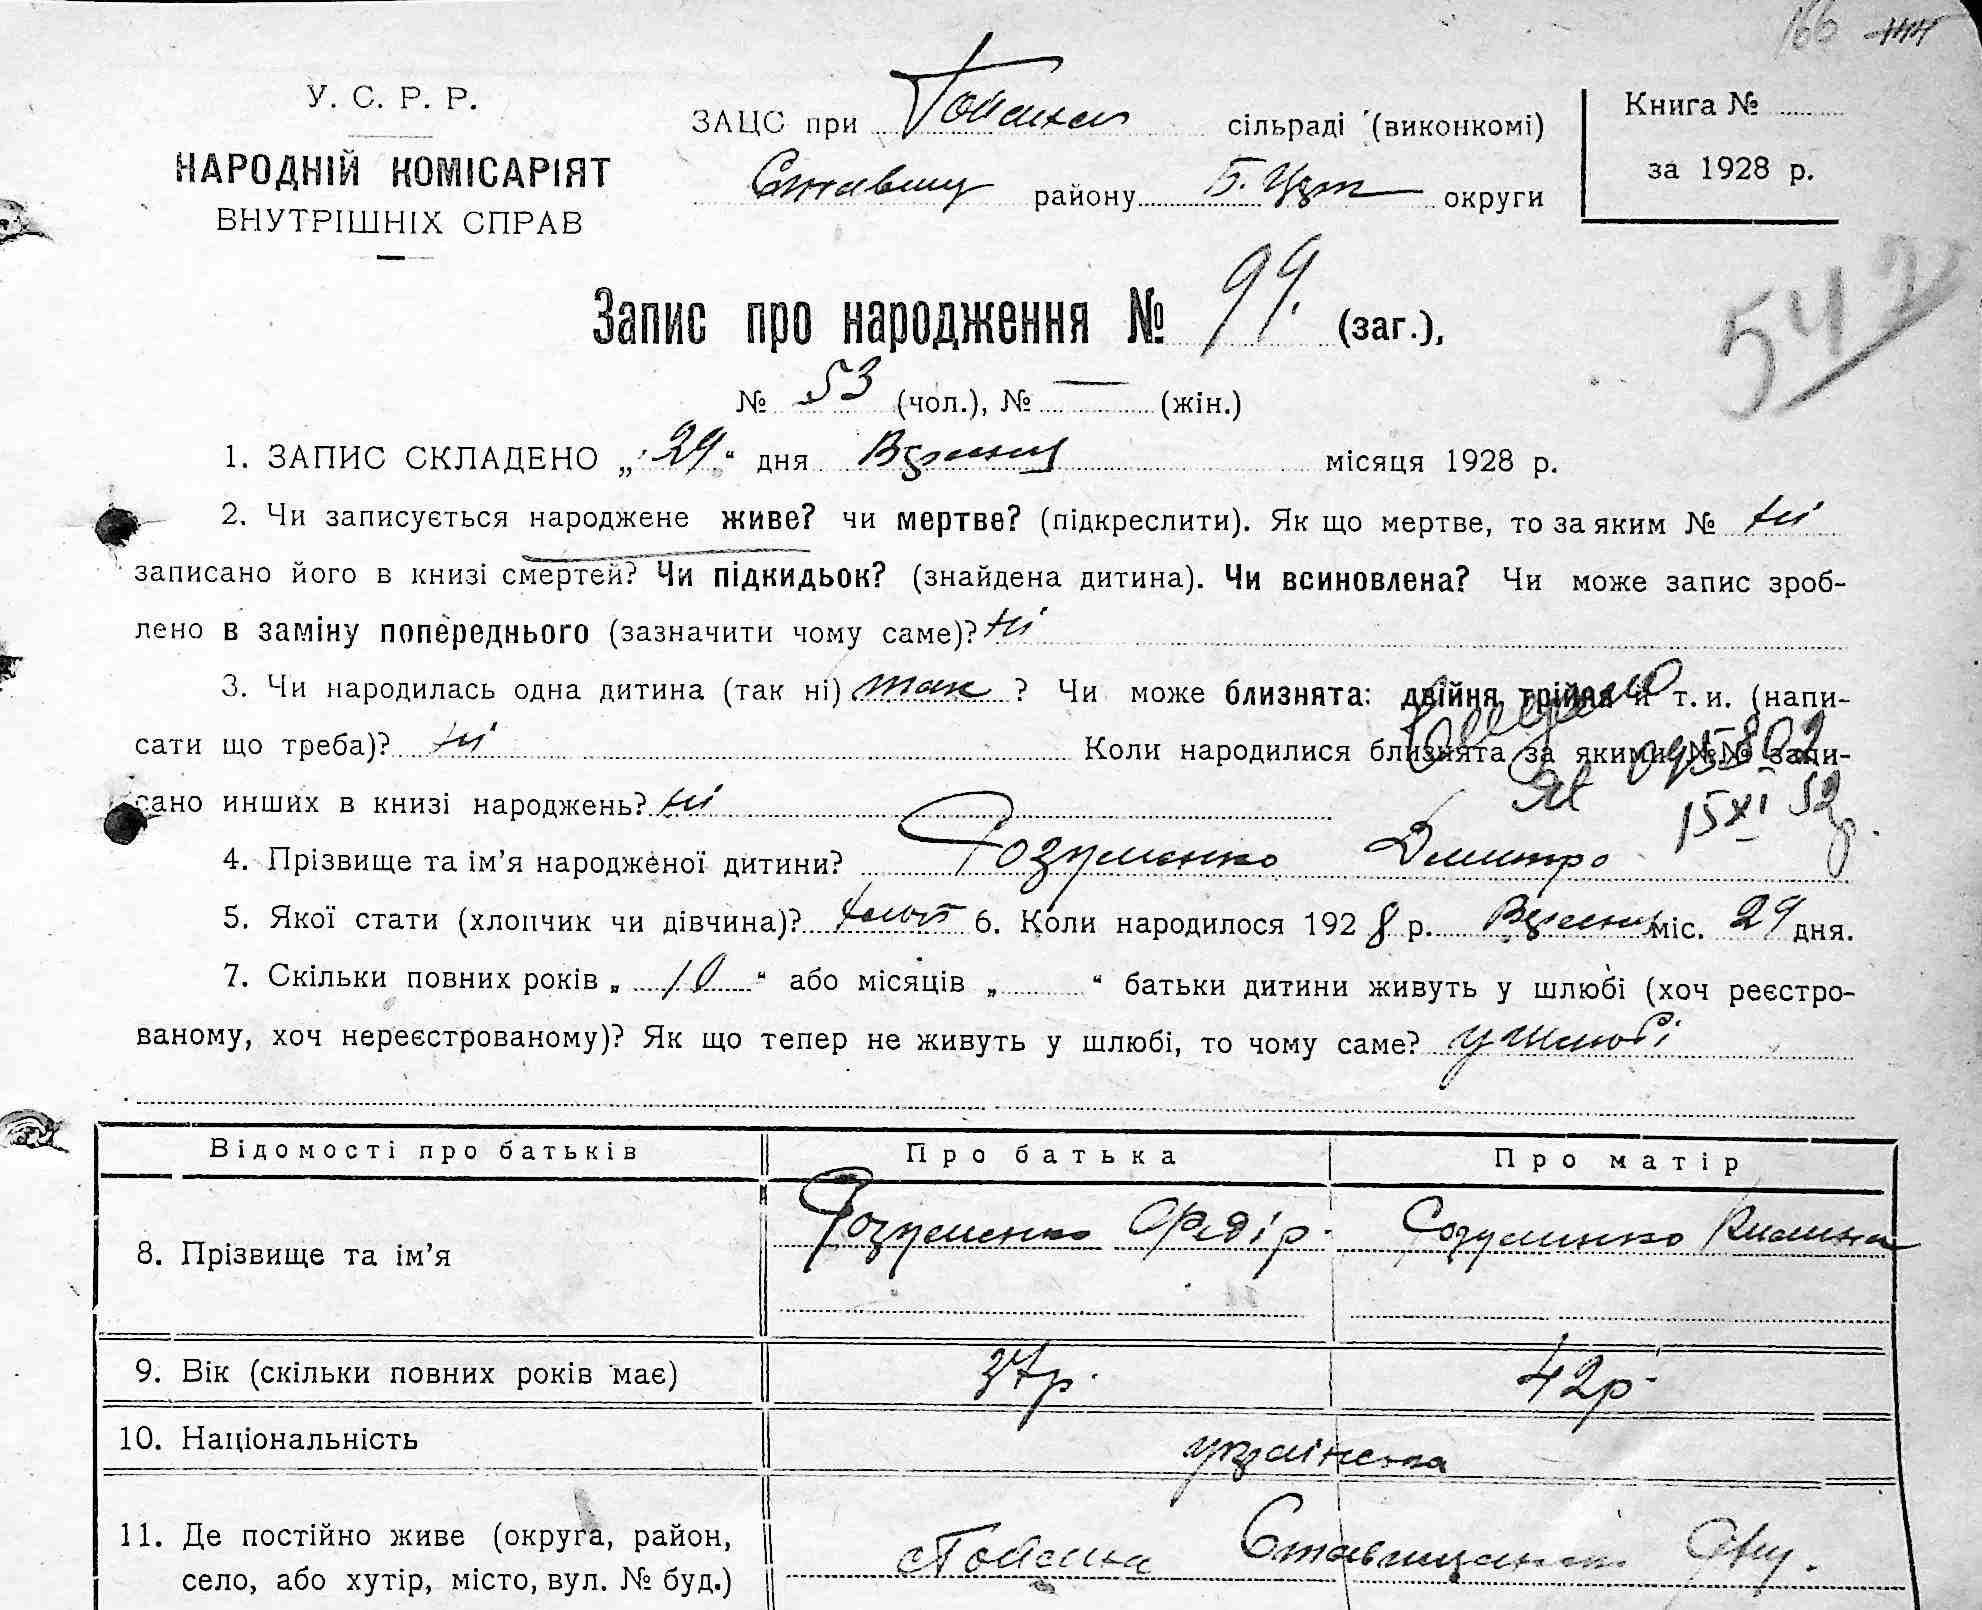 166
У. С. Р. Р.
НАРОДНІЙ КОМІСАРІЯТ
ВНУТРІШНІХ СПРАВ
ЗАЦС при сільраді (виконкомі)
Ставищ району Б. Церк округи
Книга №
за 1928 р.
Запис про народження № 99. (заг.),
542
№ 53 (чол.), № — (жін.)
1. ЗАПИС СКЛАДЕНО „29“ дня Вересня місяця 1928 р.
2. Чи записується народжене живе? чи мертве? (підкреслити). Як що мертве, то за яким № ні
записано його в книзі смертей? Чи підкидьок? (знайдена дитина). Чи всиновлена? Чи може запис зроб-
лено в заміну попереднього (зазначити чому саме)? ні
3. Чи народилась одна дитина (так ні) так ? Чи може близнята: двійня, трійня й т. и. (напи-
сати що треба)? ні Коли народилися близнята за якими №№ запи-
сано инших в книзі народжень? ні
15 XI 52 р.
4. Прізвище та ім’я народженої дитини? Розуменко Дмитро
5. Якої стати (хлопчик чи дівчина)? 6. Коли народилося 1928 р. Вересня міс. 29 дня.
7. Скільки повних років „ 10 “ або місяців „ “ батьки дитини живуть у шлюбі (хоч реєстро-
ваному, хоч нереєстрованому)? Як що тепер не живуть у шлюбі, то чому саме? у шлюбі
Відомості про батьків Про батька Про матір
8. Прізвище та ім’я Розуменко Федір Розуменко Килина
9. Вік (скільки повних років має) 37 р. 42 р.
10. Національність українська
11. Де постійно живе (округа, район,
село, або хутір, місто, вул. № буд.)